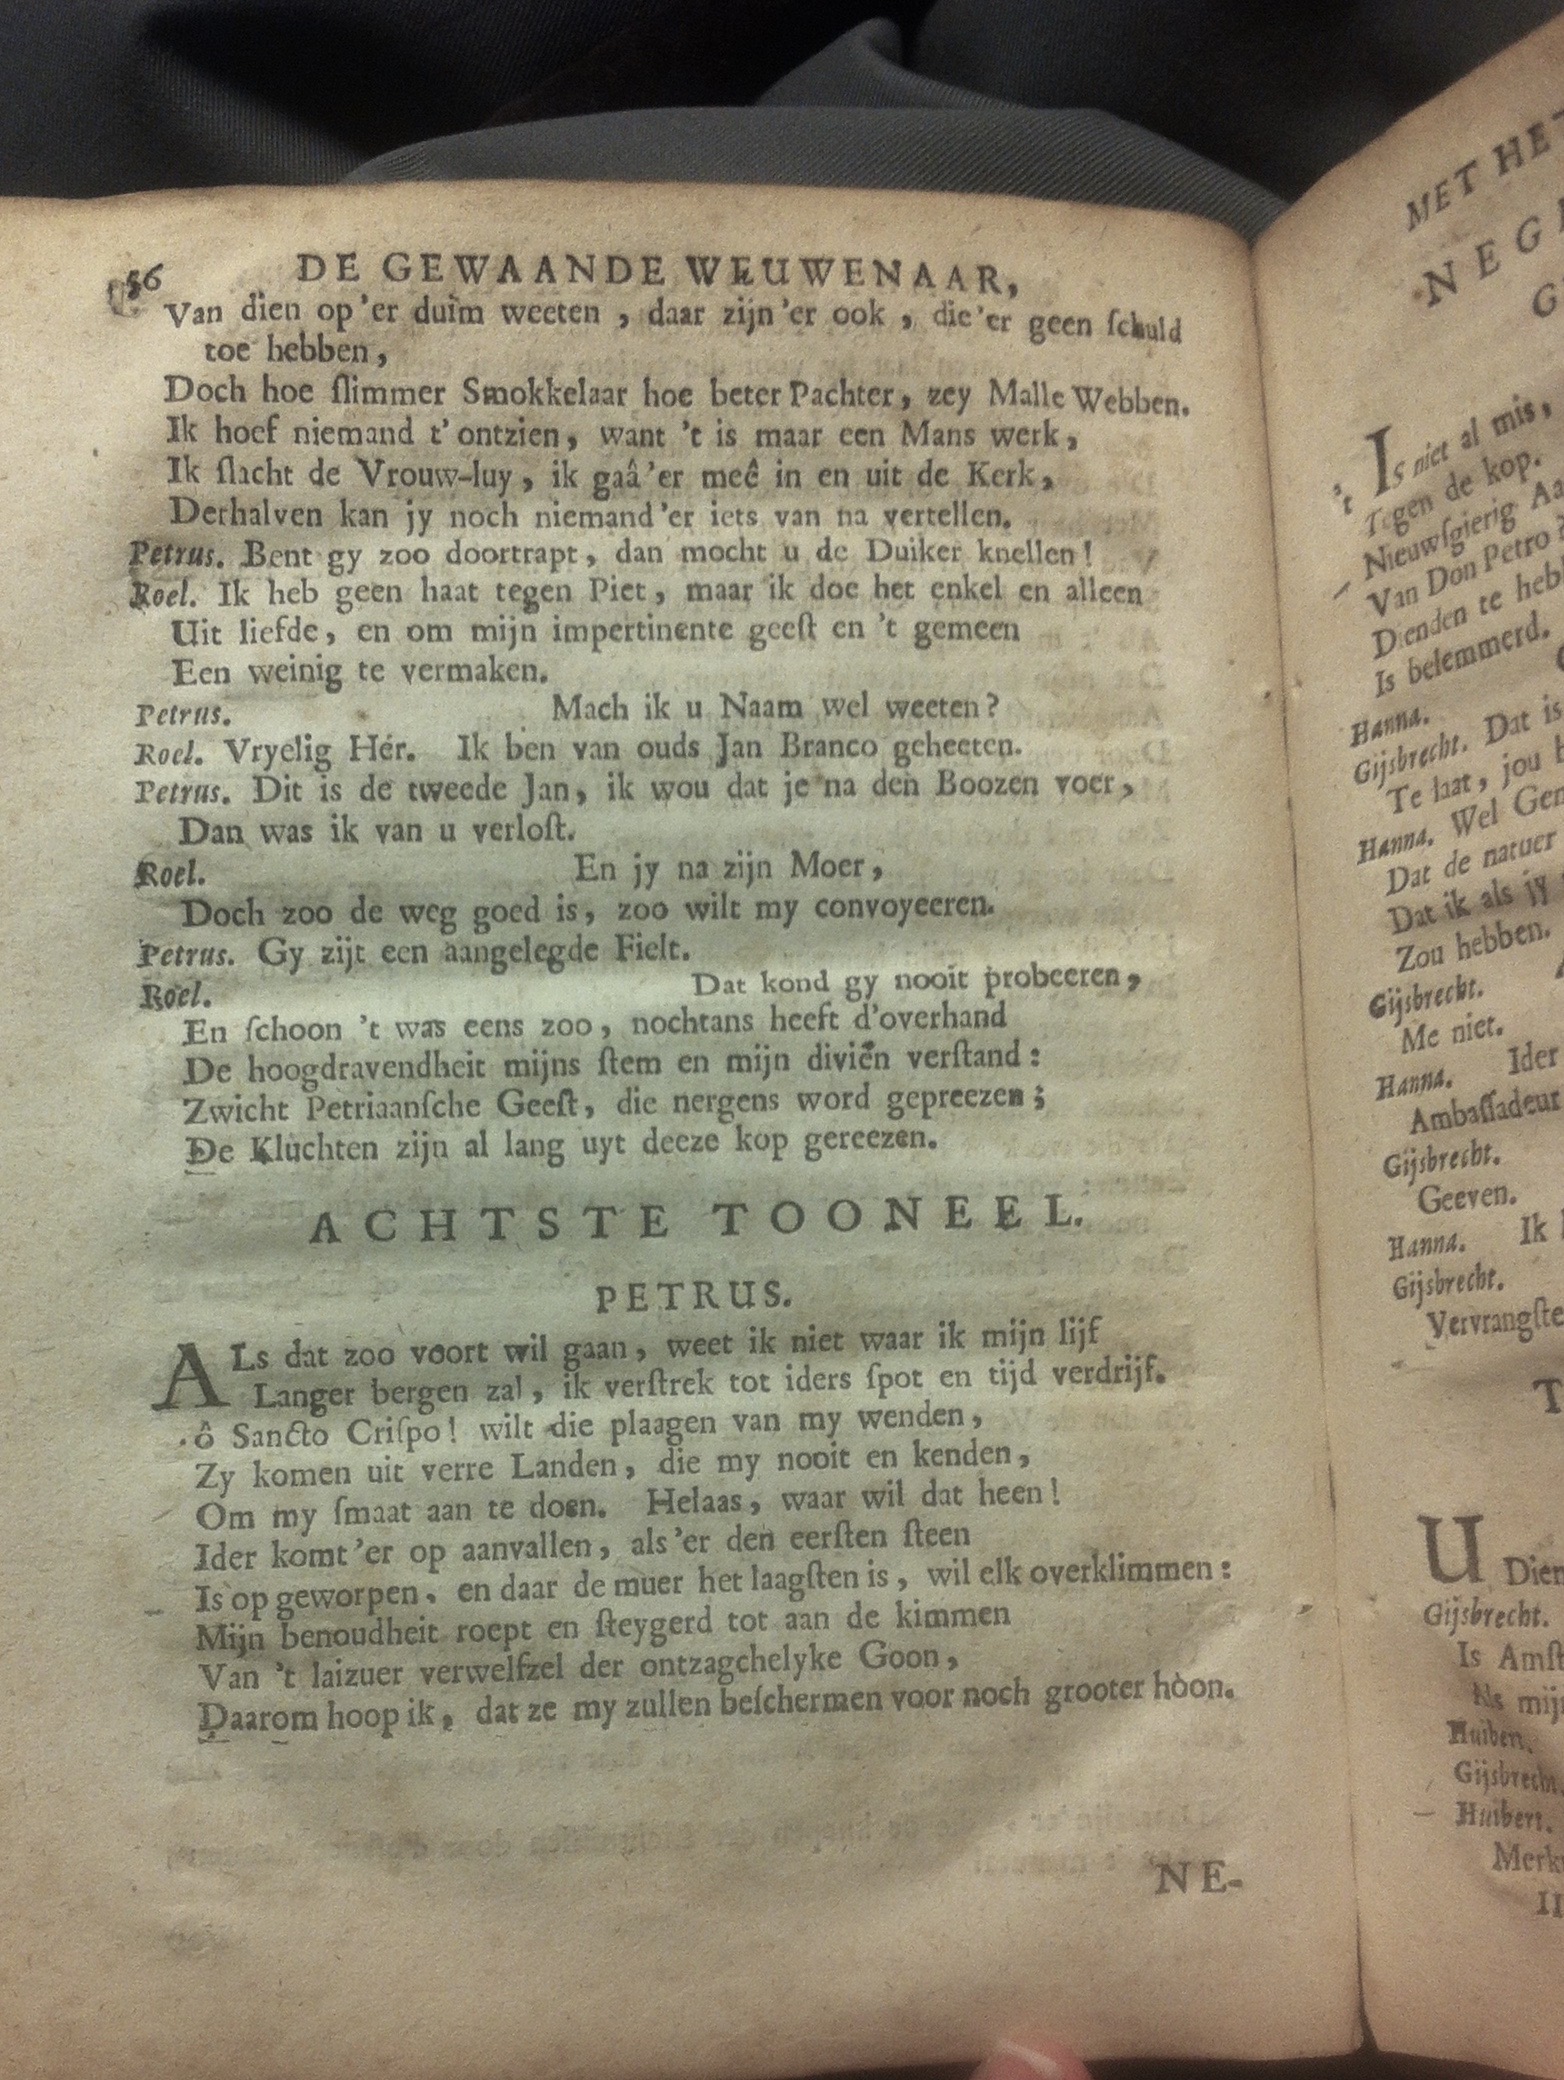 56 DE GEWAANDE WEUWENAAR,
Van dien op 'er duim weeten, daar zijn 'er ook, die 'er geen ſchuld
toe hebben,
Doch hoe ſlimmer Smokkelaar hoe beter Pachter, zey Malle Webben.
Ik hoef niemand t' ontzien, want 't is maar een Mans werk,
Ik ſlacht de Vrouw-luy, ik gaâ 'er meê in en uit de Kerk,
Derhalven kan jy noch niemand 'er iets van na vertellen.
Petrus. Bent gy zoo doortrapt, dan mocht u de Duiker knellen!
Roel. Ik heb geen haat tegen Piet, maar ik doe het enkel en alleen
Uit liefde, en om mijn impertinente geeſt en 't gemeen
Een weinig te vermaken.
Petrus. Mach ik u Naam wel weeten?
Roel. Vryelig Hér. Ik ben van ouds Jan Branco geheeten.
Petrus. Dit is de tweede Jan, ik wou dat je na den Boozen voer,
Dan was ik van u verloſt.
Roel. En jy na zijn Moer,
Doch zoo de weg goed is, zoo wilt my convoyeeren.
Petrus. Gy zijt een aangelegde Fielt.
Roel. Dat kond gy nooit probeeren,
En ſchoon 't was eens zoo, nochtans heeft d'overhand
De hoogdravendheit mijns ſtem en mijn divién verſtand:
Zwicht Petriaanſche Geeſt, die nergens word gepreezen;
De Kluchten zijn al lang uyt deeze kop gereezen.
ACHTSTE TOONEEL.
PETRUS.
ALs dat zoo voort wil gaan, weet ik niet waar ik mijn lijf
Langer bergen zal, ik verſtrek tot iders ſpot en tijd verdrijf.
ô Sancto Criſpo! wilt die plaagen van my wenden,
Zy komen uit verre Landen, die my nooit en kenden,
Om my ſmaat aan te doen. Helaas, waar wil dat heen!
Ider komt 'er op aanvallen, als 'er den eerſten ſteen
Is op geworpen, en daar de muer het laagſten is, wil elk overklimmen:
Mijn benoudheit roept en ſteygerd tot aan de kimmen
Van 't laizuer verwelfzel der ontzagchelyke Goon,
Daarom hoop ik, dat ze my zullen beſchermen voor noch grooter hoon.
NE-
MET
't Is niet al mis,
Tegen de kop.
Nieuwſgierig
Van Don Petro
Dienden te
Is belemmerd.
Hanna.
Gijsbrecht. Dat is
Te laat, jou
Hanna. Wel
Dat de natuer
Dat ik als jy
Zou hebben.
Gijsbrecht.
Me niet.
Hanna. Ider
Ambaſſadeur
Gijsbrecht.
Geeven.
Hanna. Ik
Gijsbrecht.
U
Gijsbrecht.
Is
Huibert.
Gijsbrecht.
Huibert.